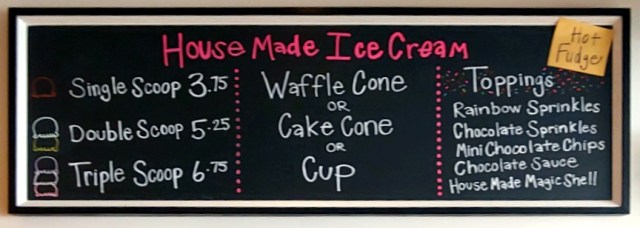 House Made Ice Cream
Hot
Fudge!
Single Scoop 3.75
Double Scoop 5.25
Triple Scoop 6.75
Waffle Cone
OR
Cake Cone
OR
Cup
Toppings
Rainbow Sprinkles
Chocolate Sprinkles
Mini Chocolate Chips
Chocolate Sauce
House Made Magic Shell